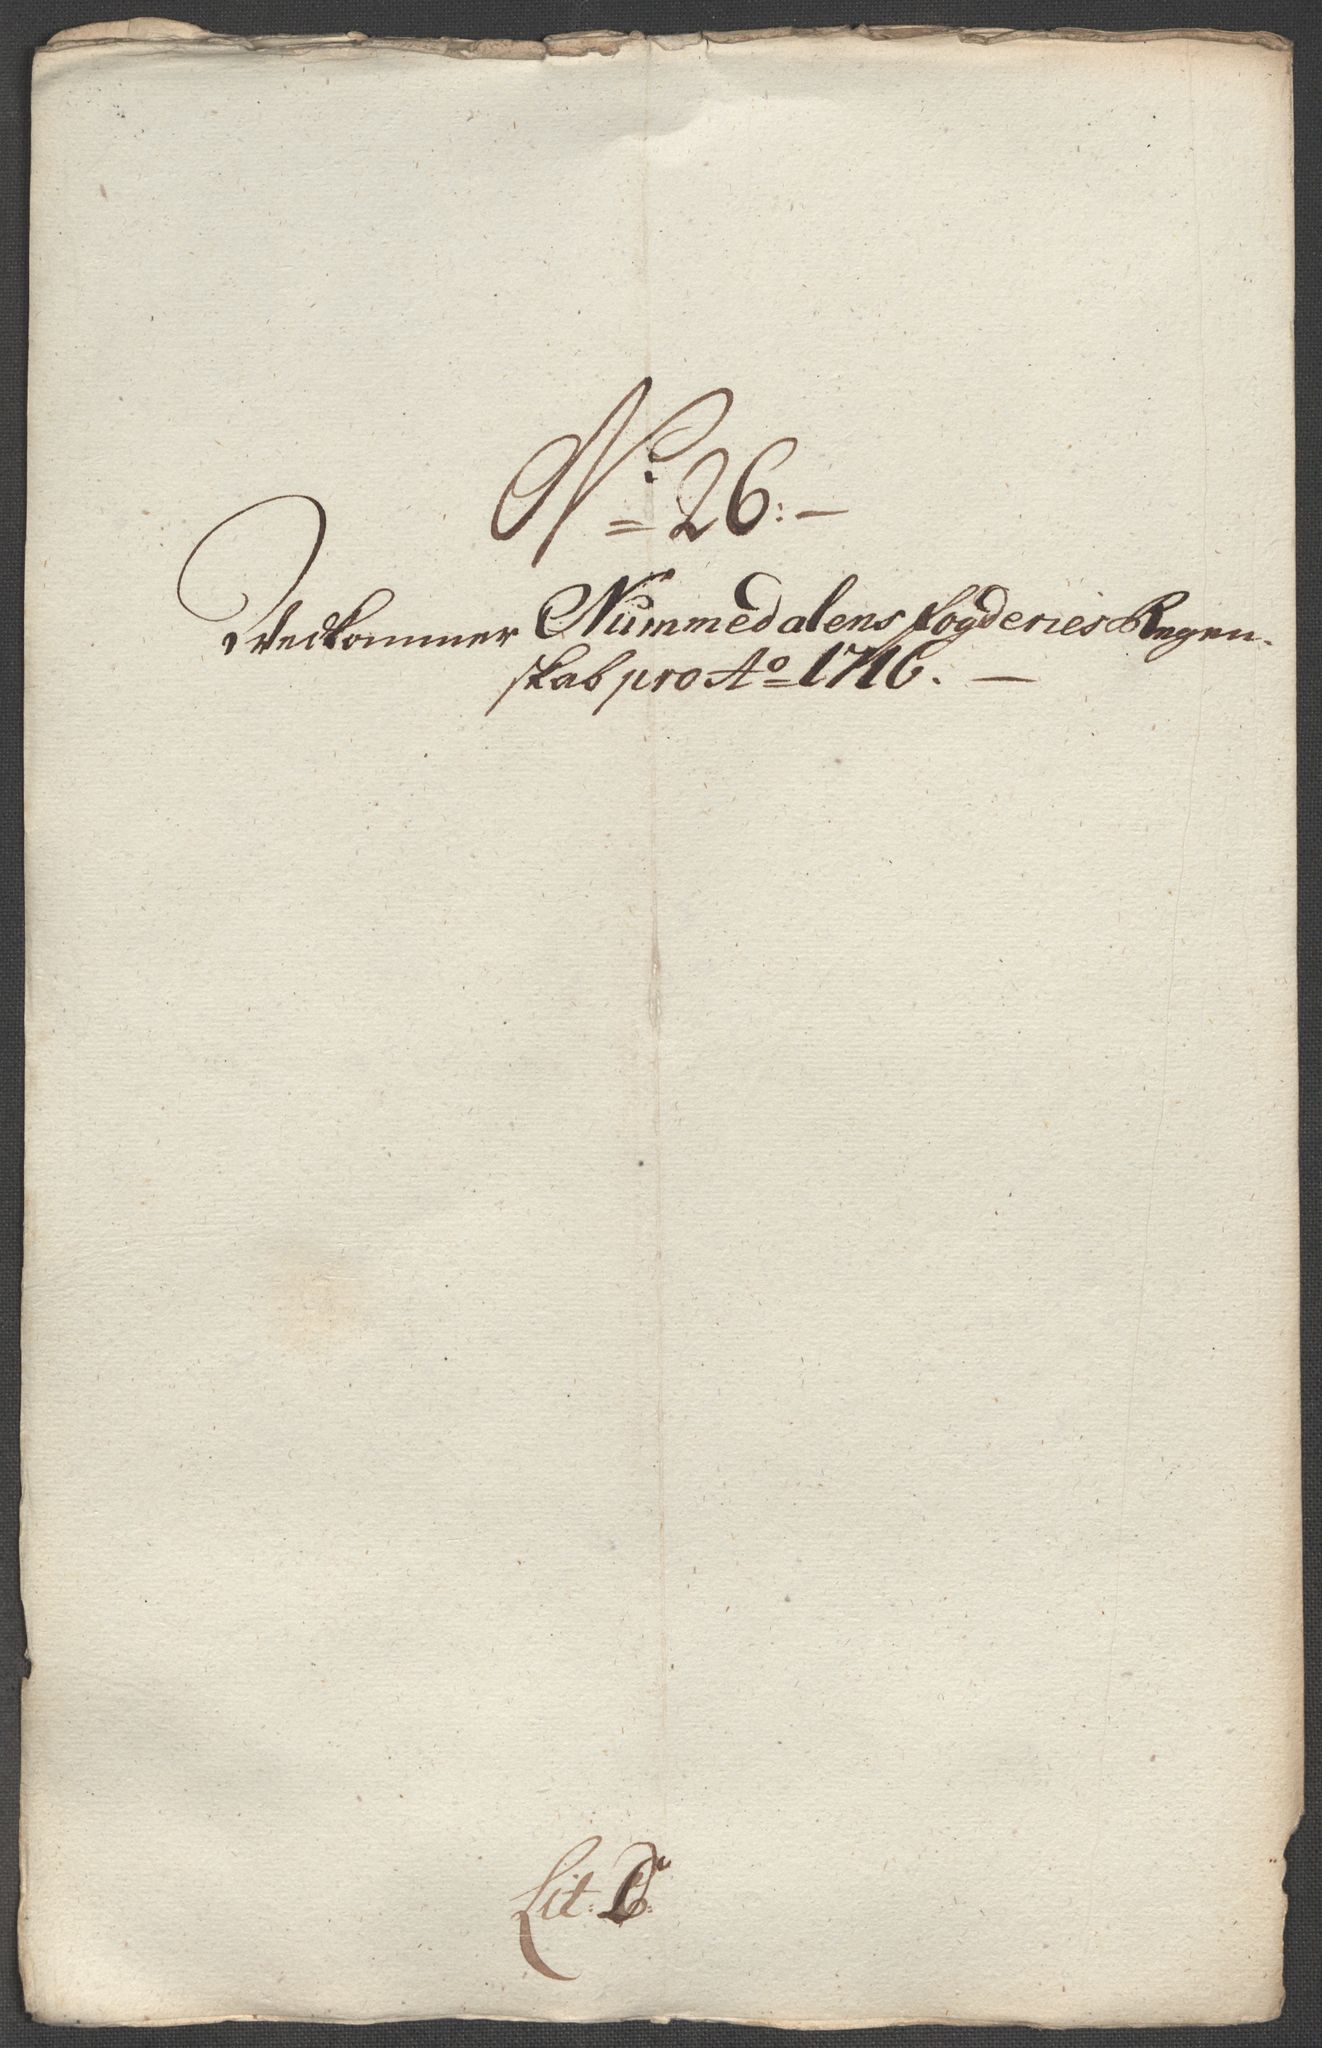 No 26:-
Vedkommer Nummedalens fogderies Regen-
skab pro Ao 1716. -
Lit: